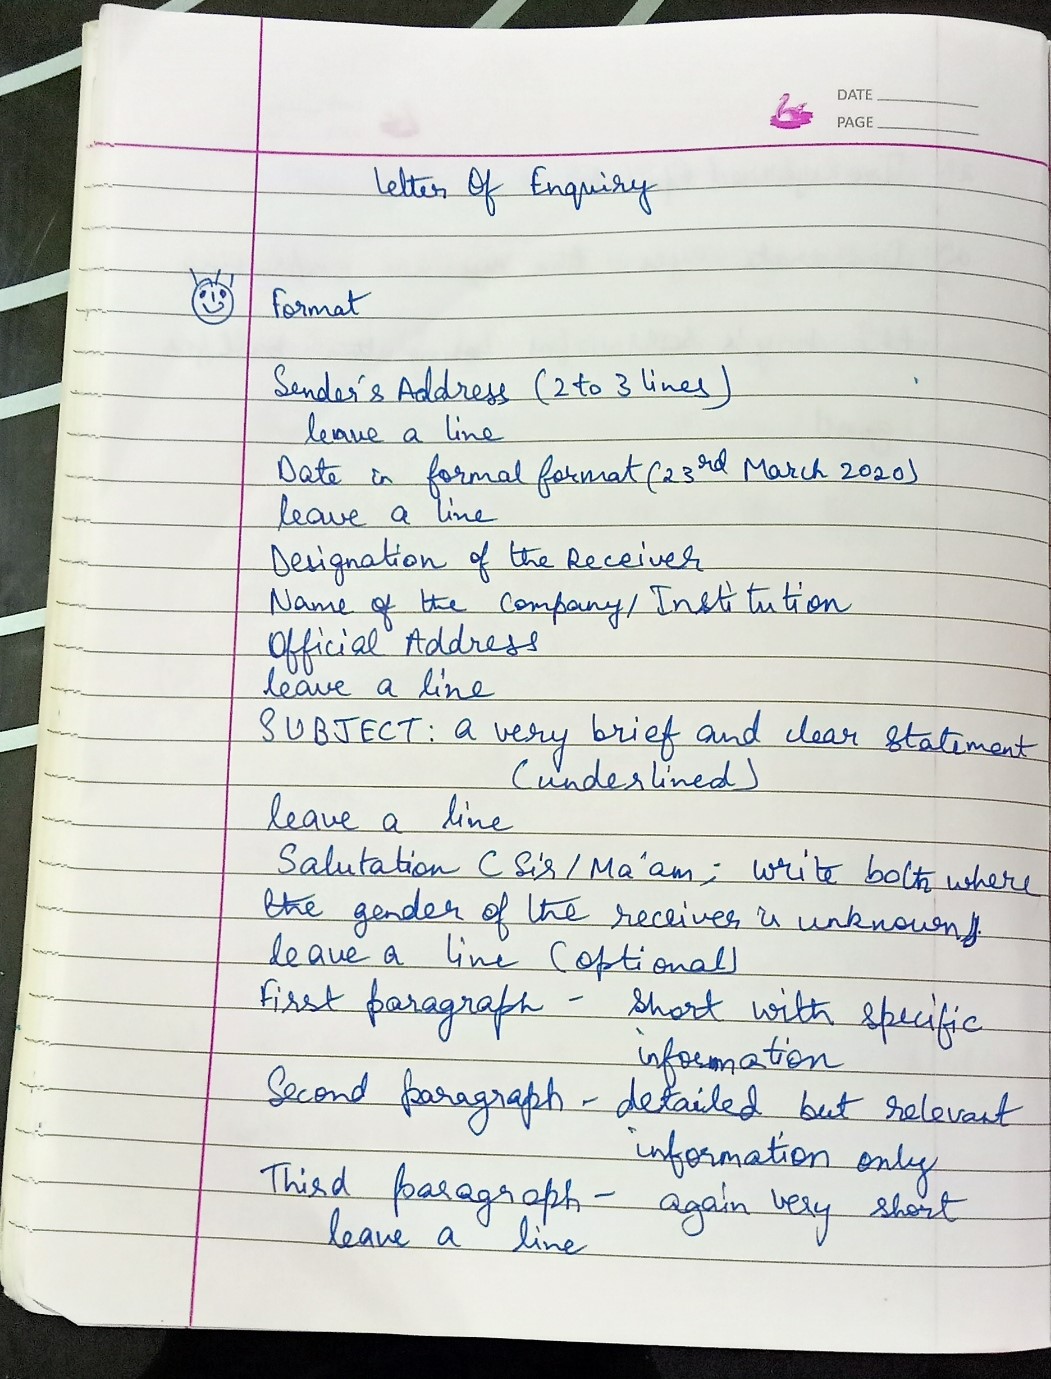 DATE
PAGE
Letter Of Enquiry
Format
Sender's Address (2 to 3 lines)
leave a line
Date in formal format (23rd March 2020)
leave a line
Designation of the Receiver
Name of the Company/Institution
Official Address
leave a line
SUBJECT: a very brief and clear statement
(underlined)
leave a line
Salutation (Sir/Ma'am; write both where
the gender of the receiver is unknown).
leave a line (optional)
First paragraph - short with specific
information
Second paragraph - detailed but relevant
information only
Third paragraph - again very short
leave a line